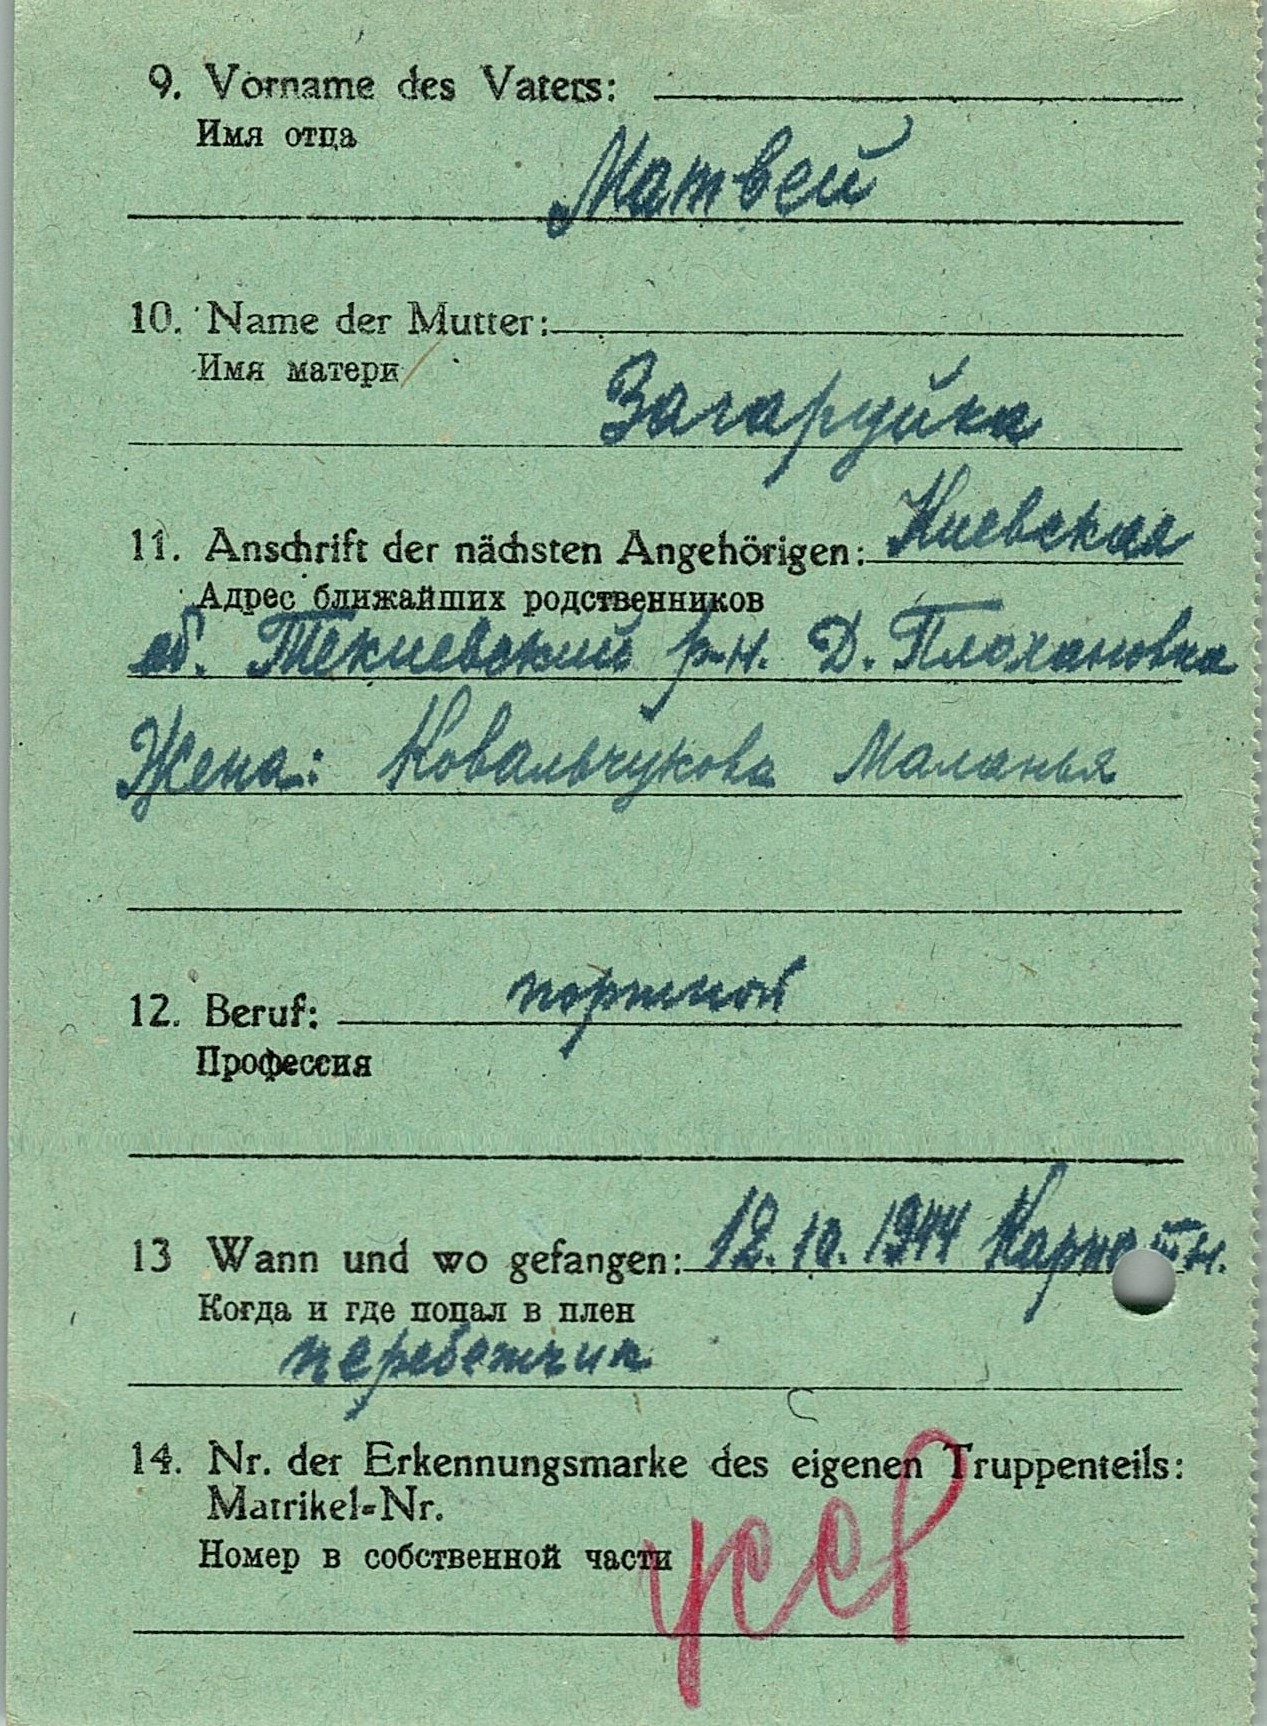 9. Vorname des Vaters:
Имя отца
Матвей
10. Name der Mutter:
Имя матери
Загаруйка
11. Anschrift der nächsten Angehörigen: Киевская
Адрес ближайших родственников
об. Текиевский р-н. Д. Плохановка
Жена: Ковальчукова Маланья
12. Beruf: портной
Профессия
13 Wann und wo gefangen: 12.10.1944 Карпаты.
Когда и где попал в плен
перебежчик
14. Nr. der Erkennungsmarke des eigenen Truppenteils:
Matrikel-Nr.
Номер в собственной части
УССР